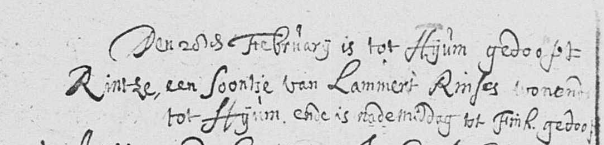 Den 28sten February is tot Hijum gedoopt
Rintze, een soontje van Lammert Rinses wonende
tot Hijum. ende is nademiddag tot Fink. gedoopt